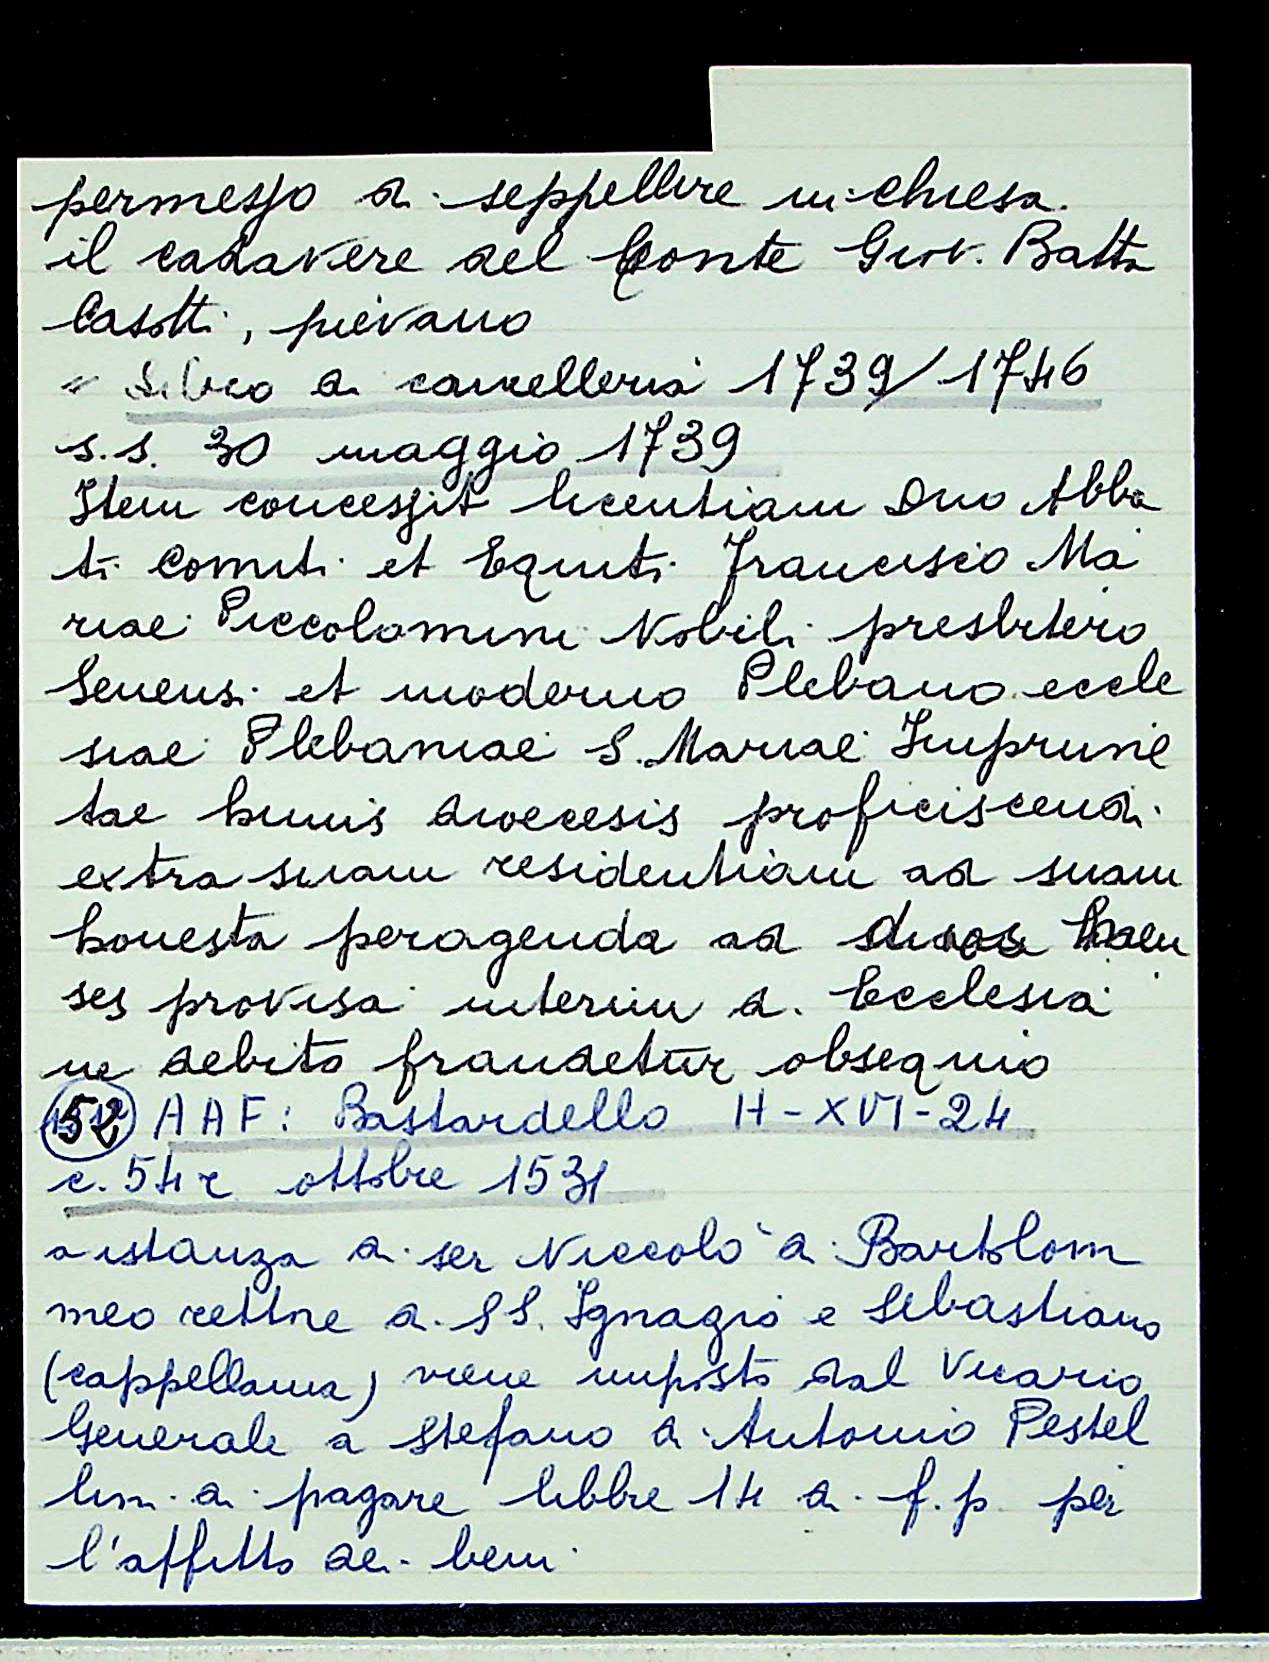 permesso di seppellire in chiesa
il cadavere del Conte Giov. Batta
Casotti, pievano
" Libro di cancelleria 1739/1746
s.s. 30 maggio 1739
Item concessit licentiam Dno Abba
ti Comiti et Equiti Francisco Ma
riae Piccolomini Nobili presbitero
Senensi et moderno Plebano eccle
siae Plebaniae S. Mariae Imprune
tae huius diocesis proficiscendi
extra suam residentiam ad suam
honesta peragenda ad men
ses provisa interim d. Ecclesia
ne debito fraudetur obsequio
52 AAF: Bastardello H-XVI-24
c. 54r ottobre 1531
a istanza di ser Niccolò di Bartolom
meo rettore di SS. Ignazio e Sebastiano
(cappellania) viene imposto dal Vicario
Generale a Stefano di Antonio Pestel
lini di pagare libbre 14 di f.p. per
l'affitto dei beni